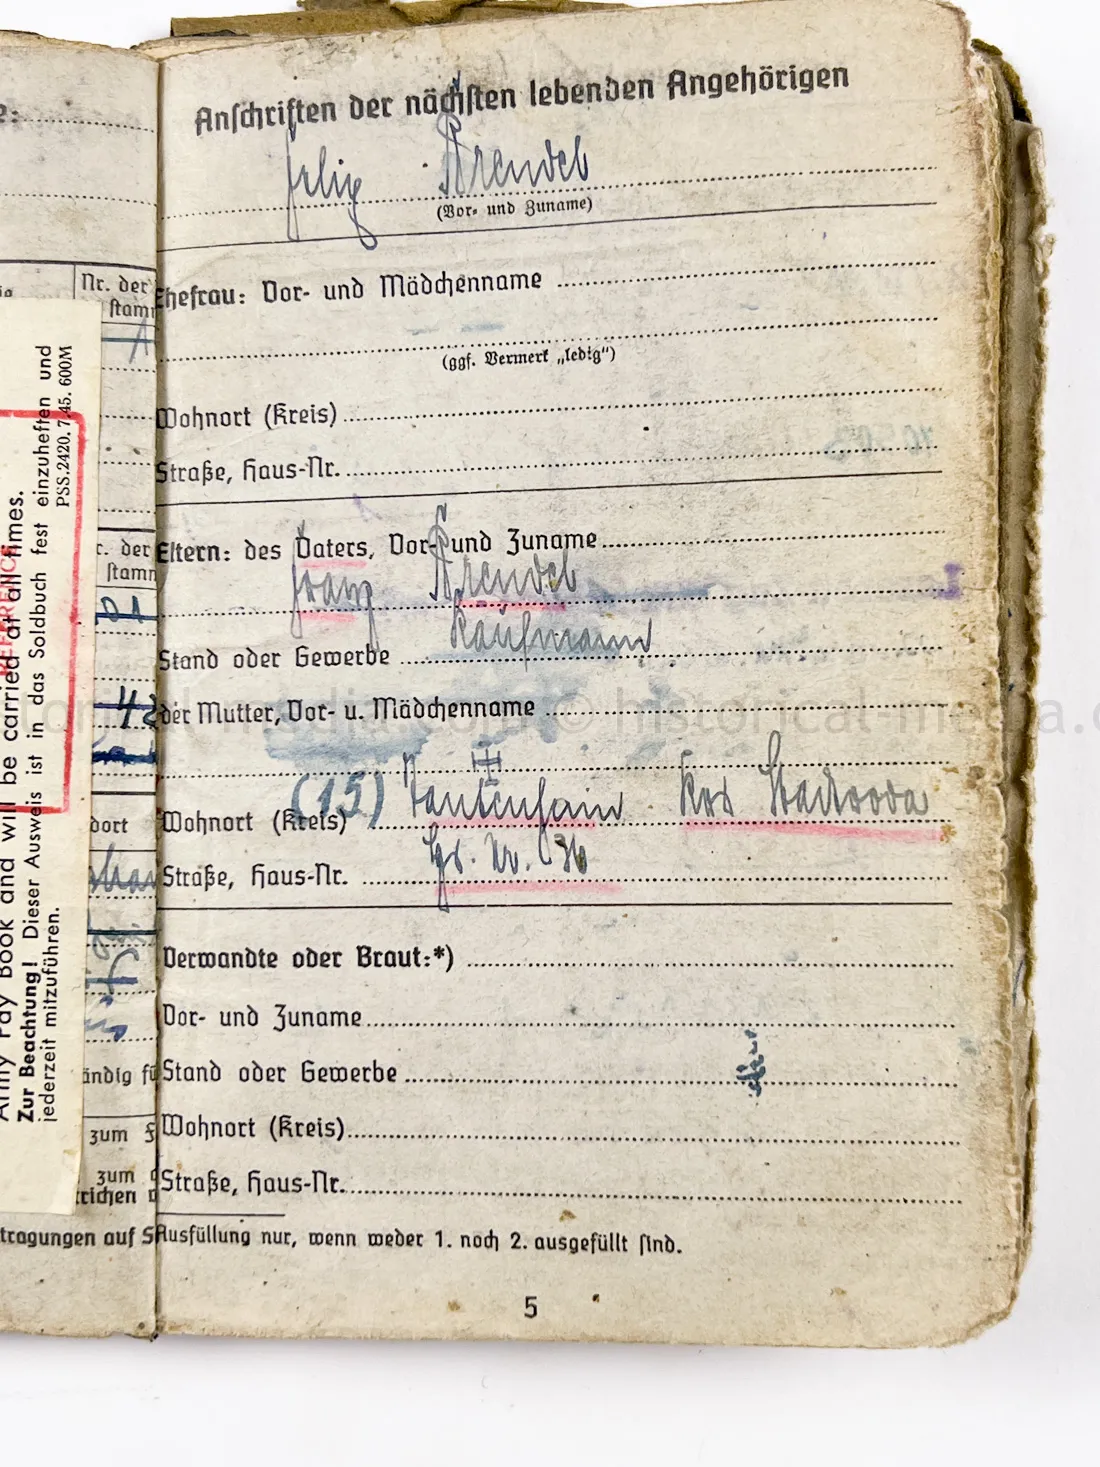 Nr. der
stam
r. der
stamm
01
42
dort
ändig fü
zum
zum
trichen
tragungen auf S
PSS.2420. 7.45. 600M
Army Pay Book and will be carried at all times.
Zur Beachtung! Dieser Ausweis ist in das Soldbuch fest einzuheften und
jederzeit mitzuführen.
Anschriften der nächsten lebenden Angehörigen
Felix Arendel
(Vor- und Zuname)
Ehefrau: Vor- und Mädchenname
(ggf. Vermerk „ledig“)
Wohnort (Kreis)
Straße, Haus-Nr.
Eltern: des Vaters, Vor- und Zuname
Franz Arendel
Kaufmann
Stand oder Gewerbe
der Mutter, Vor- u. Mädchenname
(15) Tautenhain Krs Stadtroda
Wohnort (Kreis)
Hs. Nr. 36
Straße, Haus-Nr.
Verwandte oder Braut:*)
Vor- und Zuname
Stand oder Gewerbe
Wohnort (Kreis)
Straße, Haus-Nr.
Ausfüllung nur, wenn weder 1. noch 2. ausgefüllt sind.
5
© historical-media.c